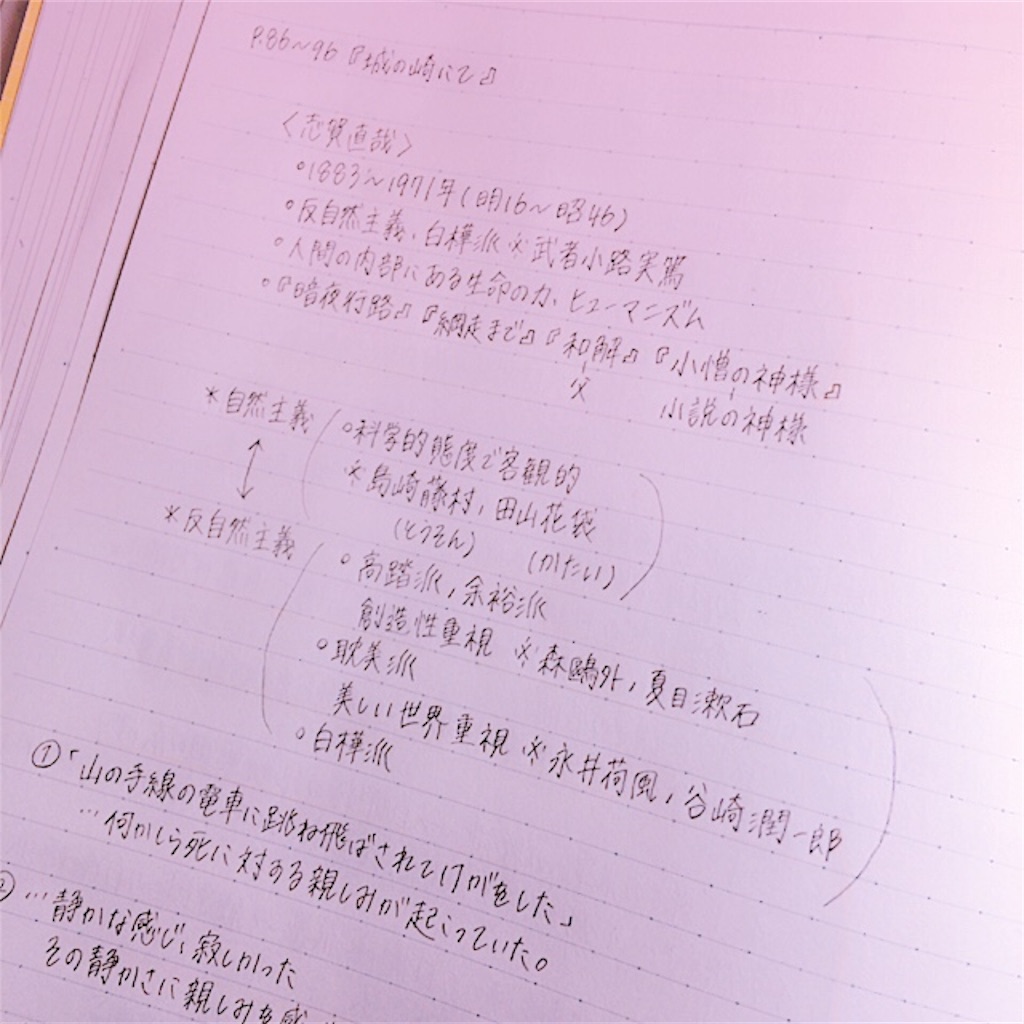 P.86〜96『城の崎にて』
〈志賀直哉〉
○1883〜1971年(明16〜昭46)
○反自然主義、白樺派 ※武者小路実篤
○人間の内部にある生命の力、ヒューマニズム
○『暗夜行路』『網走まで』『和解』『小僧の神様』
父 小説の神様
*自然主義
○科学的態度で客観的
※島崎藤村, 田山花袋
(とうそん) (かたい)
↕
*反自然主義
○高踏派, 余裕派
創造性重視 ※森鷗外, 夏目漱石
○耽美派
美しい世界重視 ※永井荷風, 谷崎潤一郎
○白樺派
①「山の手線の電車に跳ね飛ばされてけがをした」
…何かしら死に対する親しみが起こっていた。
②…静かな感じ、寂しかった
その静かさに親しみを感